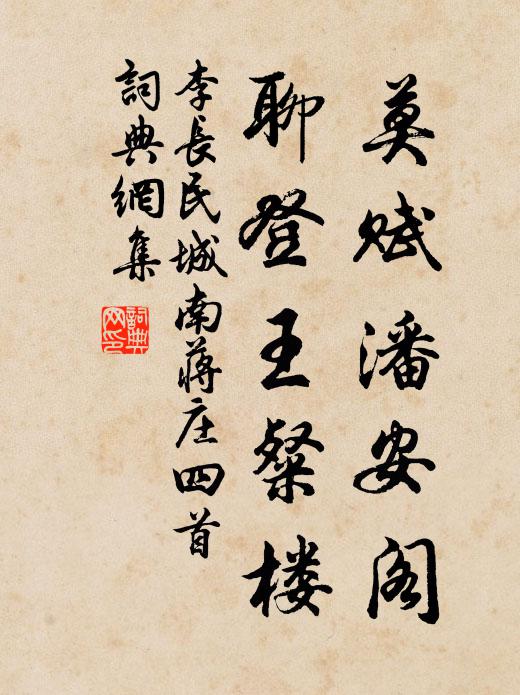 莫赋潘安阁
聊登王粲楼
李長民城南蒋庄四首
詞典網集
詞典网印